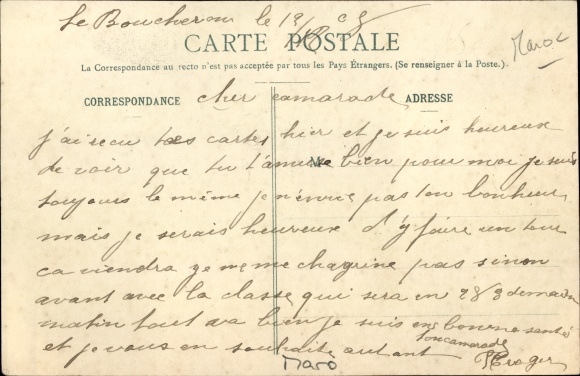 Le Boucheron le 19
CARTE POSTALE
Maroc
La Correspondance au recto n'est pas acceptée par tous les Pays Étrangers. (Se renseigner à la Poste.)
CORRESPONDANCE cher camarade ADRESSE
j'ai recu tes cartes hier et je suis heureux
de voir que tu t'amuse bien pour moi je suis
M
toujours le même je n'envie pas ton bonheur
mais je serais heureux d'y faire un tour
ca viendra je me me chagrine pas sinon
avant avec la classe qui sera en 283 demain
matin tout va bien je suis en bonne santé
et je vous en souhaite autant ton camarade
Roger
Maro